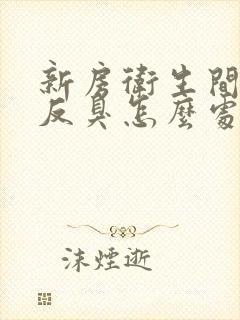 新房衛生間
反臭怎麼處
沫煙逝